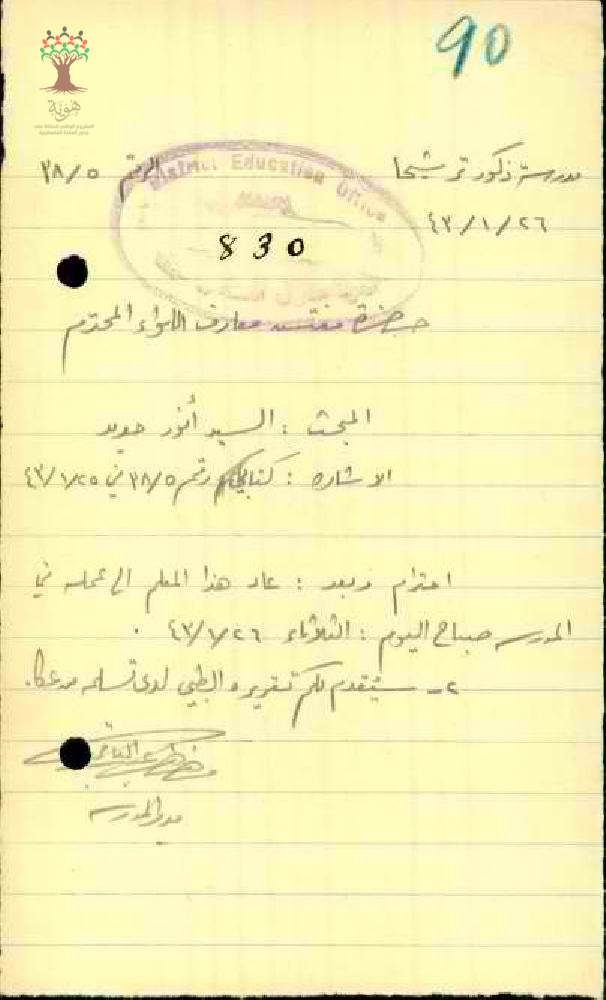 90
هوية
مدرسة ذكور ترشيحا
الرقم ٣٨/٥
٤٣/١/٢٦
District Education Office
830
حضرة مفتش معارف اللواء المحترم
المبحث : السيد أنور حويد
الاشارة : كتابكم رقم ٣٨/٥ في ٤٣/١/٢٥
احترام وبعد : عاد هذا المعلم الى عمله في
المدرسه صباح اليوم : الثلاثاء ٤٣/١/٢٦ .
٢ـ سيتقدم لكم تقريره الطبي لدى تسلمه من عكا.
مدير المدرسه